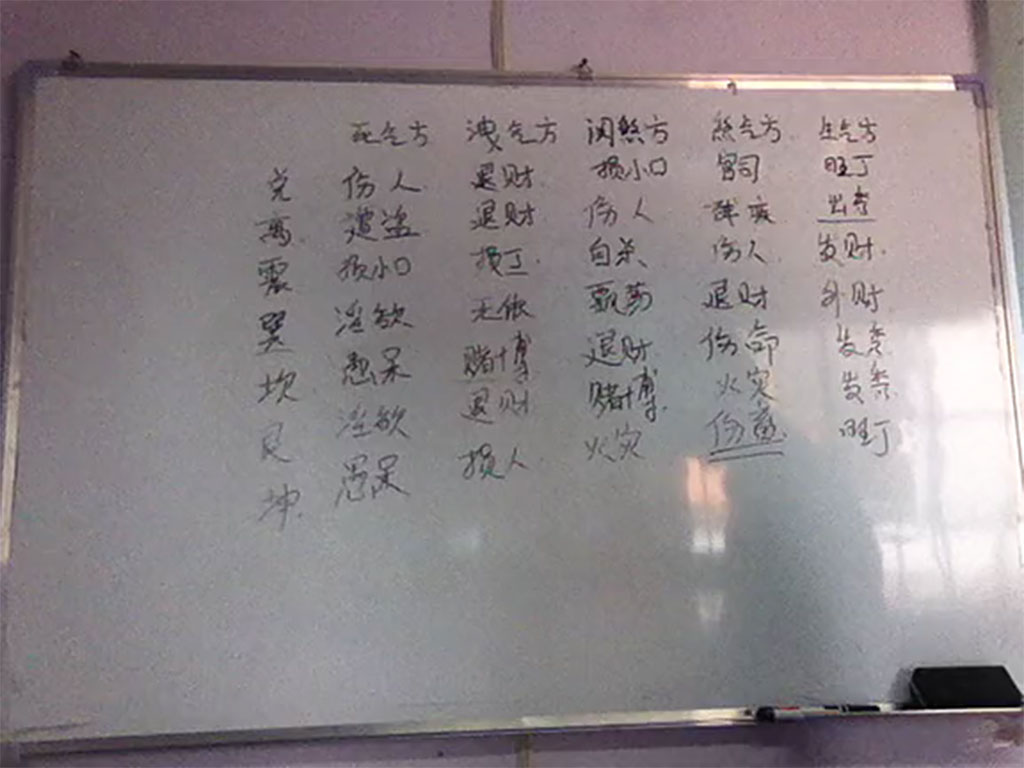 死气方 洩气方 闪煞方 煞气方 生气方
兑 伤人 退财 损小口 官司 旺丁
离 遭盗 退财 伤人 出
震 损小口 损丁 自杀 伤人 发财
巽 淫欲 无依 飘荡 退财 外财
坎 愚呆 赌博 退财 伤命 发
艮 淫欲 退财 赌博 火灾 发
坤 愚呆 损人 火灾 伤 旺丁